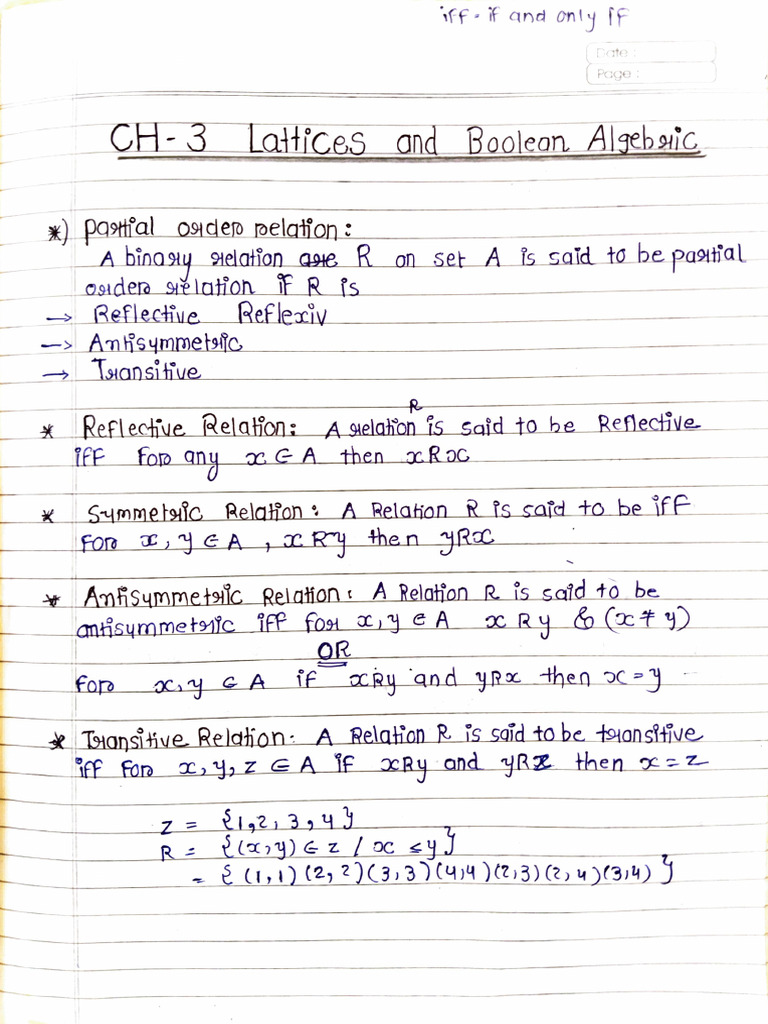 iff - if and only if
Date :
Page :
CH-3 Lattices and Boolean Algebric
*) Partial order relation :
A binary relation are R on set A is said to be partial
order relation if R is
→ Reflective Reflexiv
→ Antisymmetric
→ Transitive
R
* Reflective Relation : A relation is said to be Reflective
iff for any x ∈ A then xRx
* Symmetric Relation : A Relation R is said to be iff
for x, y ∈ A , x R y then yRx
* Antisymmetric Relation : A Relation R is said to be
antisymmetric iff for x, y ∈ A x R y & (x ≠ y)
OR
for x, y ∈ A if xRy and yRx then x = y
* Transitive Relation. A Relation R is said to be transitive
iff for x, y, z ∈ A if xRy and yRz then x = z
Z = {1, 2, 3, 4}
R = {(x, y) ∈ z / x ≤ y}
= {(1, 1) (2, 2) (3, 3) (4, 4) (2, 3) (2, 4) (3, 4)}